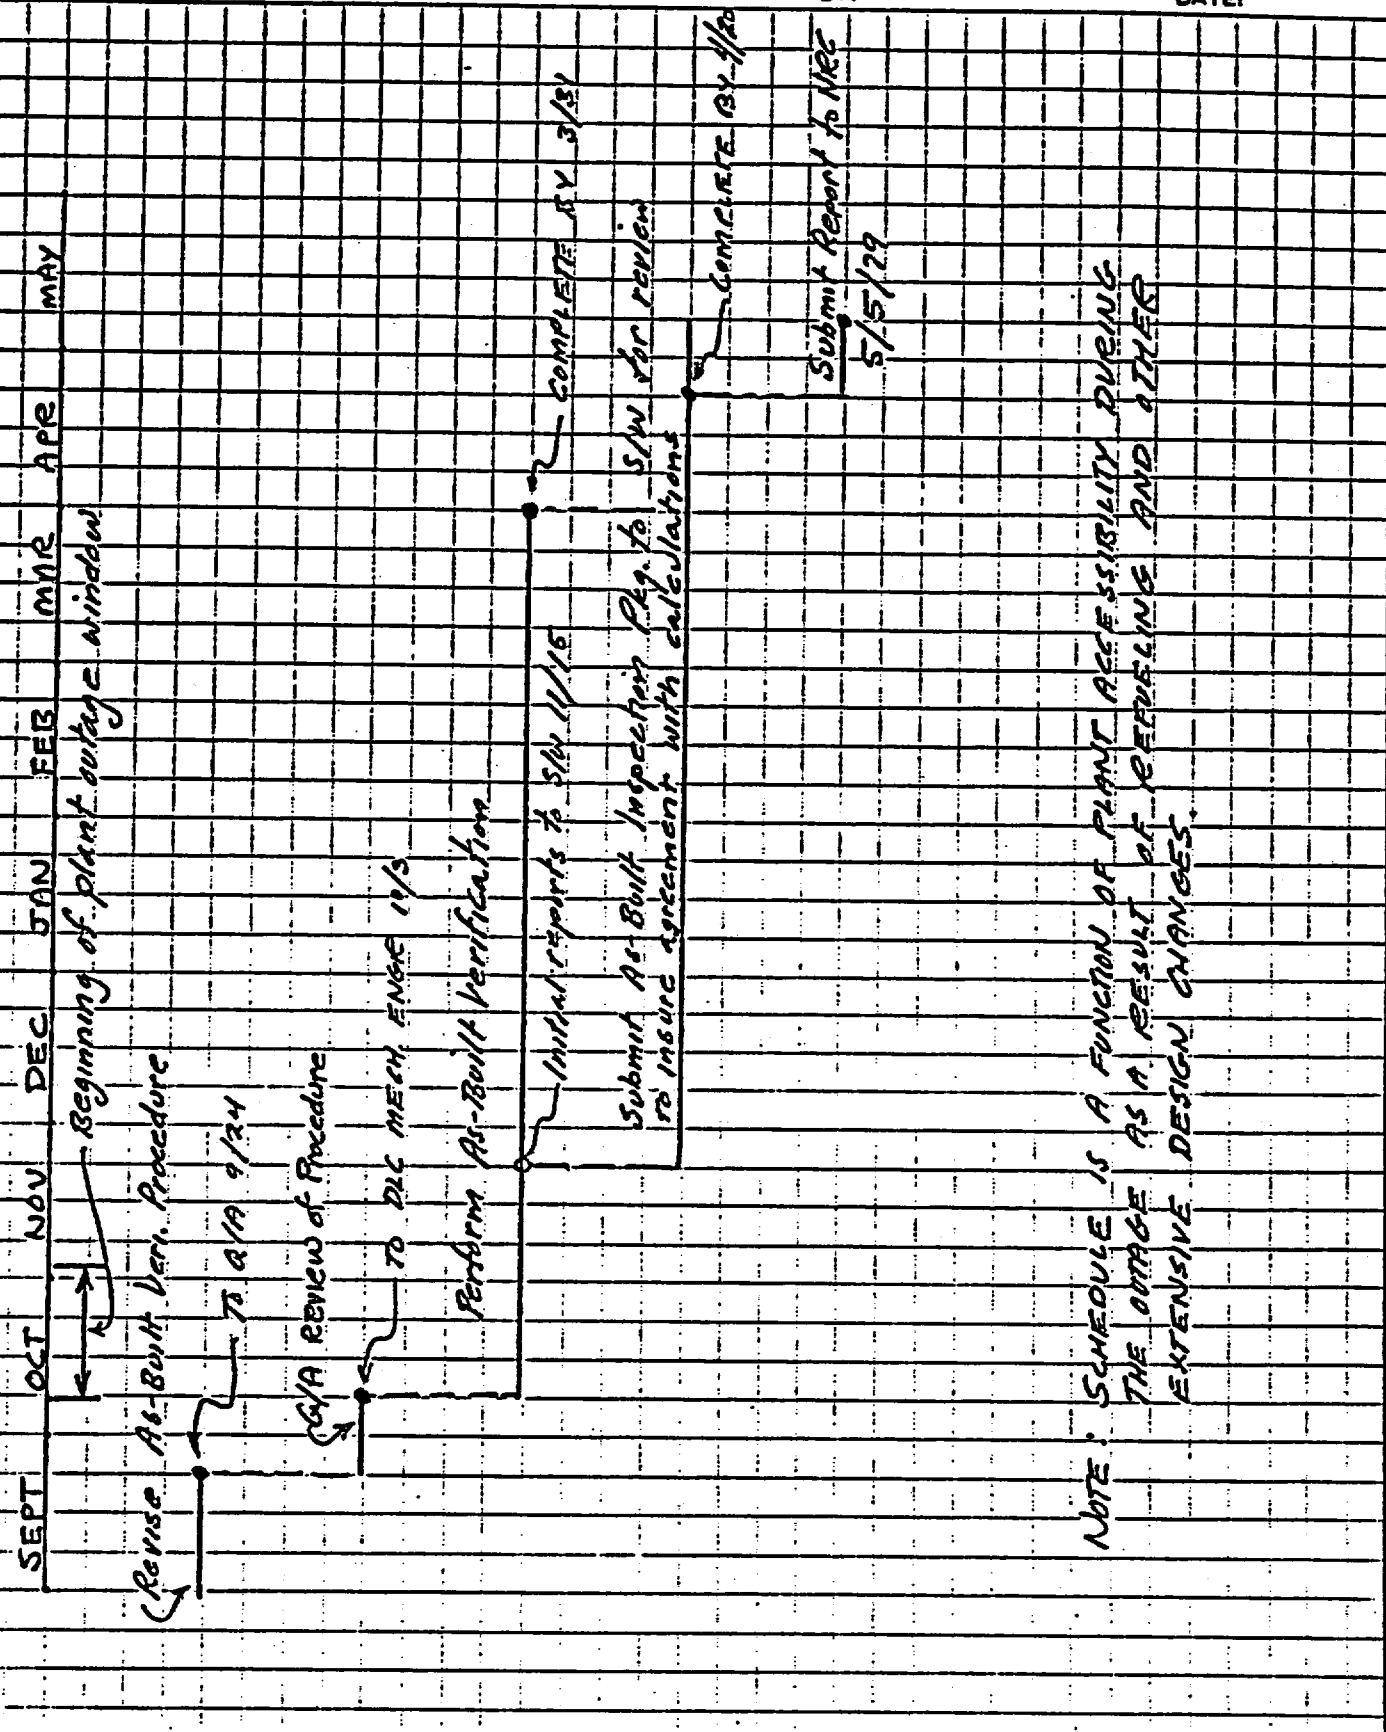 DATE:
SEPT OCT NOV DEC JAN FEB MAR APR MAY
Beginning of plant outage window
Revise As-Built Veri. Procedure
TO Q/A 9/24
Q/A Review of Procedure
TO DLC MECH. ENGR 10/3
Perform As-Built Verification
COMPLETE BY 3/31
Initial reports to S/W 11/15
Submit As-Built Inspection Pkg. to S/W for review
to insure agreement with calculations
COMPLETE BY 4/20
Submit Report to NRC
5/5/79
NOTE: SCHEDULE IS A FUNCTION OF PLANT ACCESSIBILITY DURING
THE OUTAGE AS A RESULT OF REFUELING AND OTHER
EXTENSIVE DESIGN CHANGES.